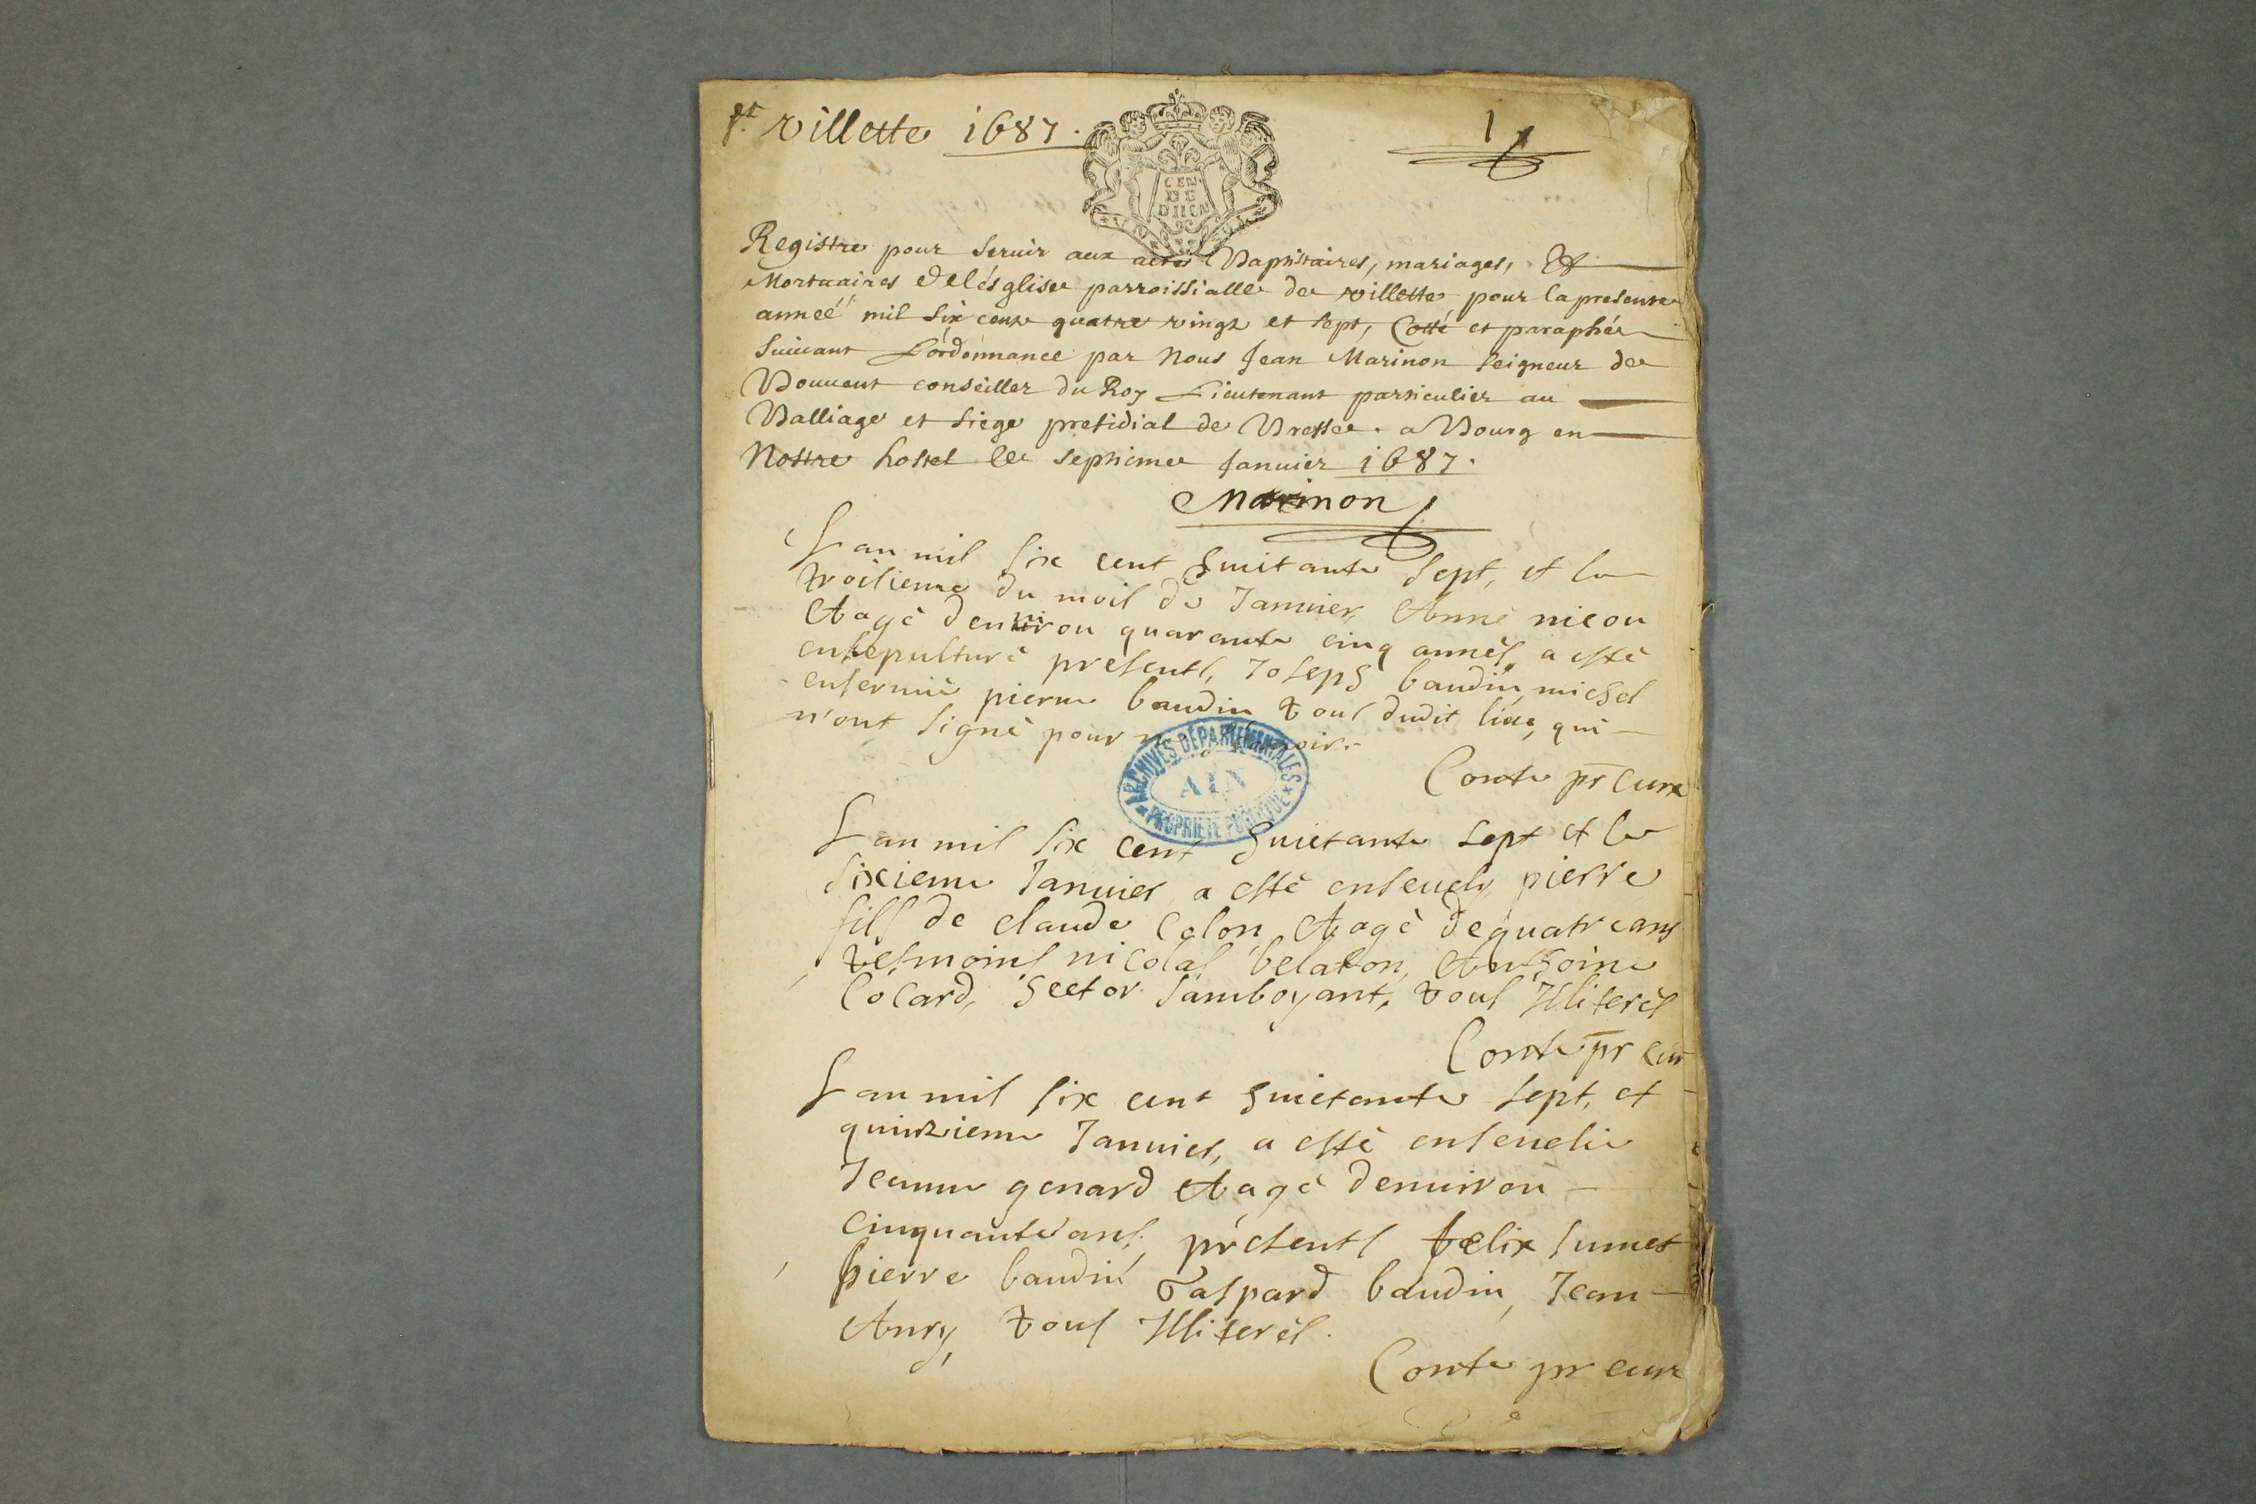 villette 1687.
1
CEN.
DE
DIION
Registre pour seruir aux actes Baptistaires, mariages, Et
Mortuaires de lésglise parroissialle de villette pour la presente
année mil six cents quatre vingt et sept, Cotté et paraphée
Suiuant L'ordonnance par Nous Jean Marinon Seigneur de
Bouuent conseiller du Roy Lieutenant particulier au
Balliage et siege presidial de Bresse. a Bourg en
Nostre hostel le septieme Januier 1687.
Marinon
L an mil six cent huitante sept, et le
troisieme du mois de Januier, Anne nicou
Aagé denuirou quarante cinq annés, a esté
ensepulturé presents, Joseph baudin, michel
pierre baudin tous dudit lieu, qui
n'ont signé pour
ARCHIVES DÉPARTEMENTALES
AIN
PROPRIÉTÉ PUBLIQUE
Conte pr cure
L an mil six cent huictante sept et le
sixieme Januier a esté enseuely pierre
fils de claude Colon Aagé de quatre ans
tesmoins nicolas belaton, Anthoine
Cocard, hector Jamboyant, tous Illiterés
Conte pr cur
L an mil six cent huictante sept, et
quinzieme Januier, a esté enseuelie
Jeanne genard Aagé denuiron
cinquante ans, présents felix Jumet
pierre baudin Gaspard baudin, Jean
Anry, tous Illiterés.
Conte pr cure